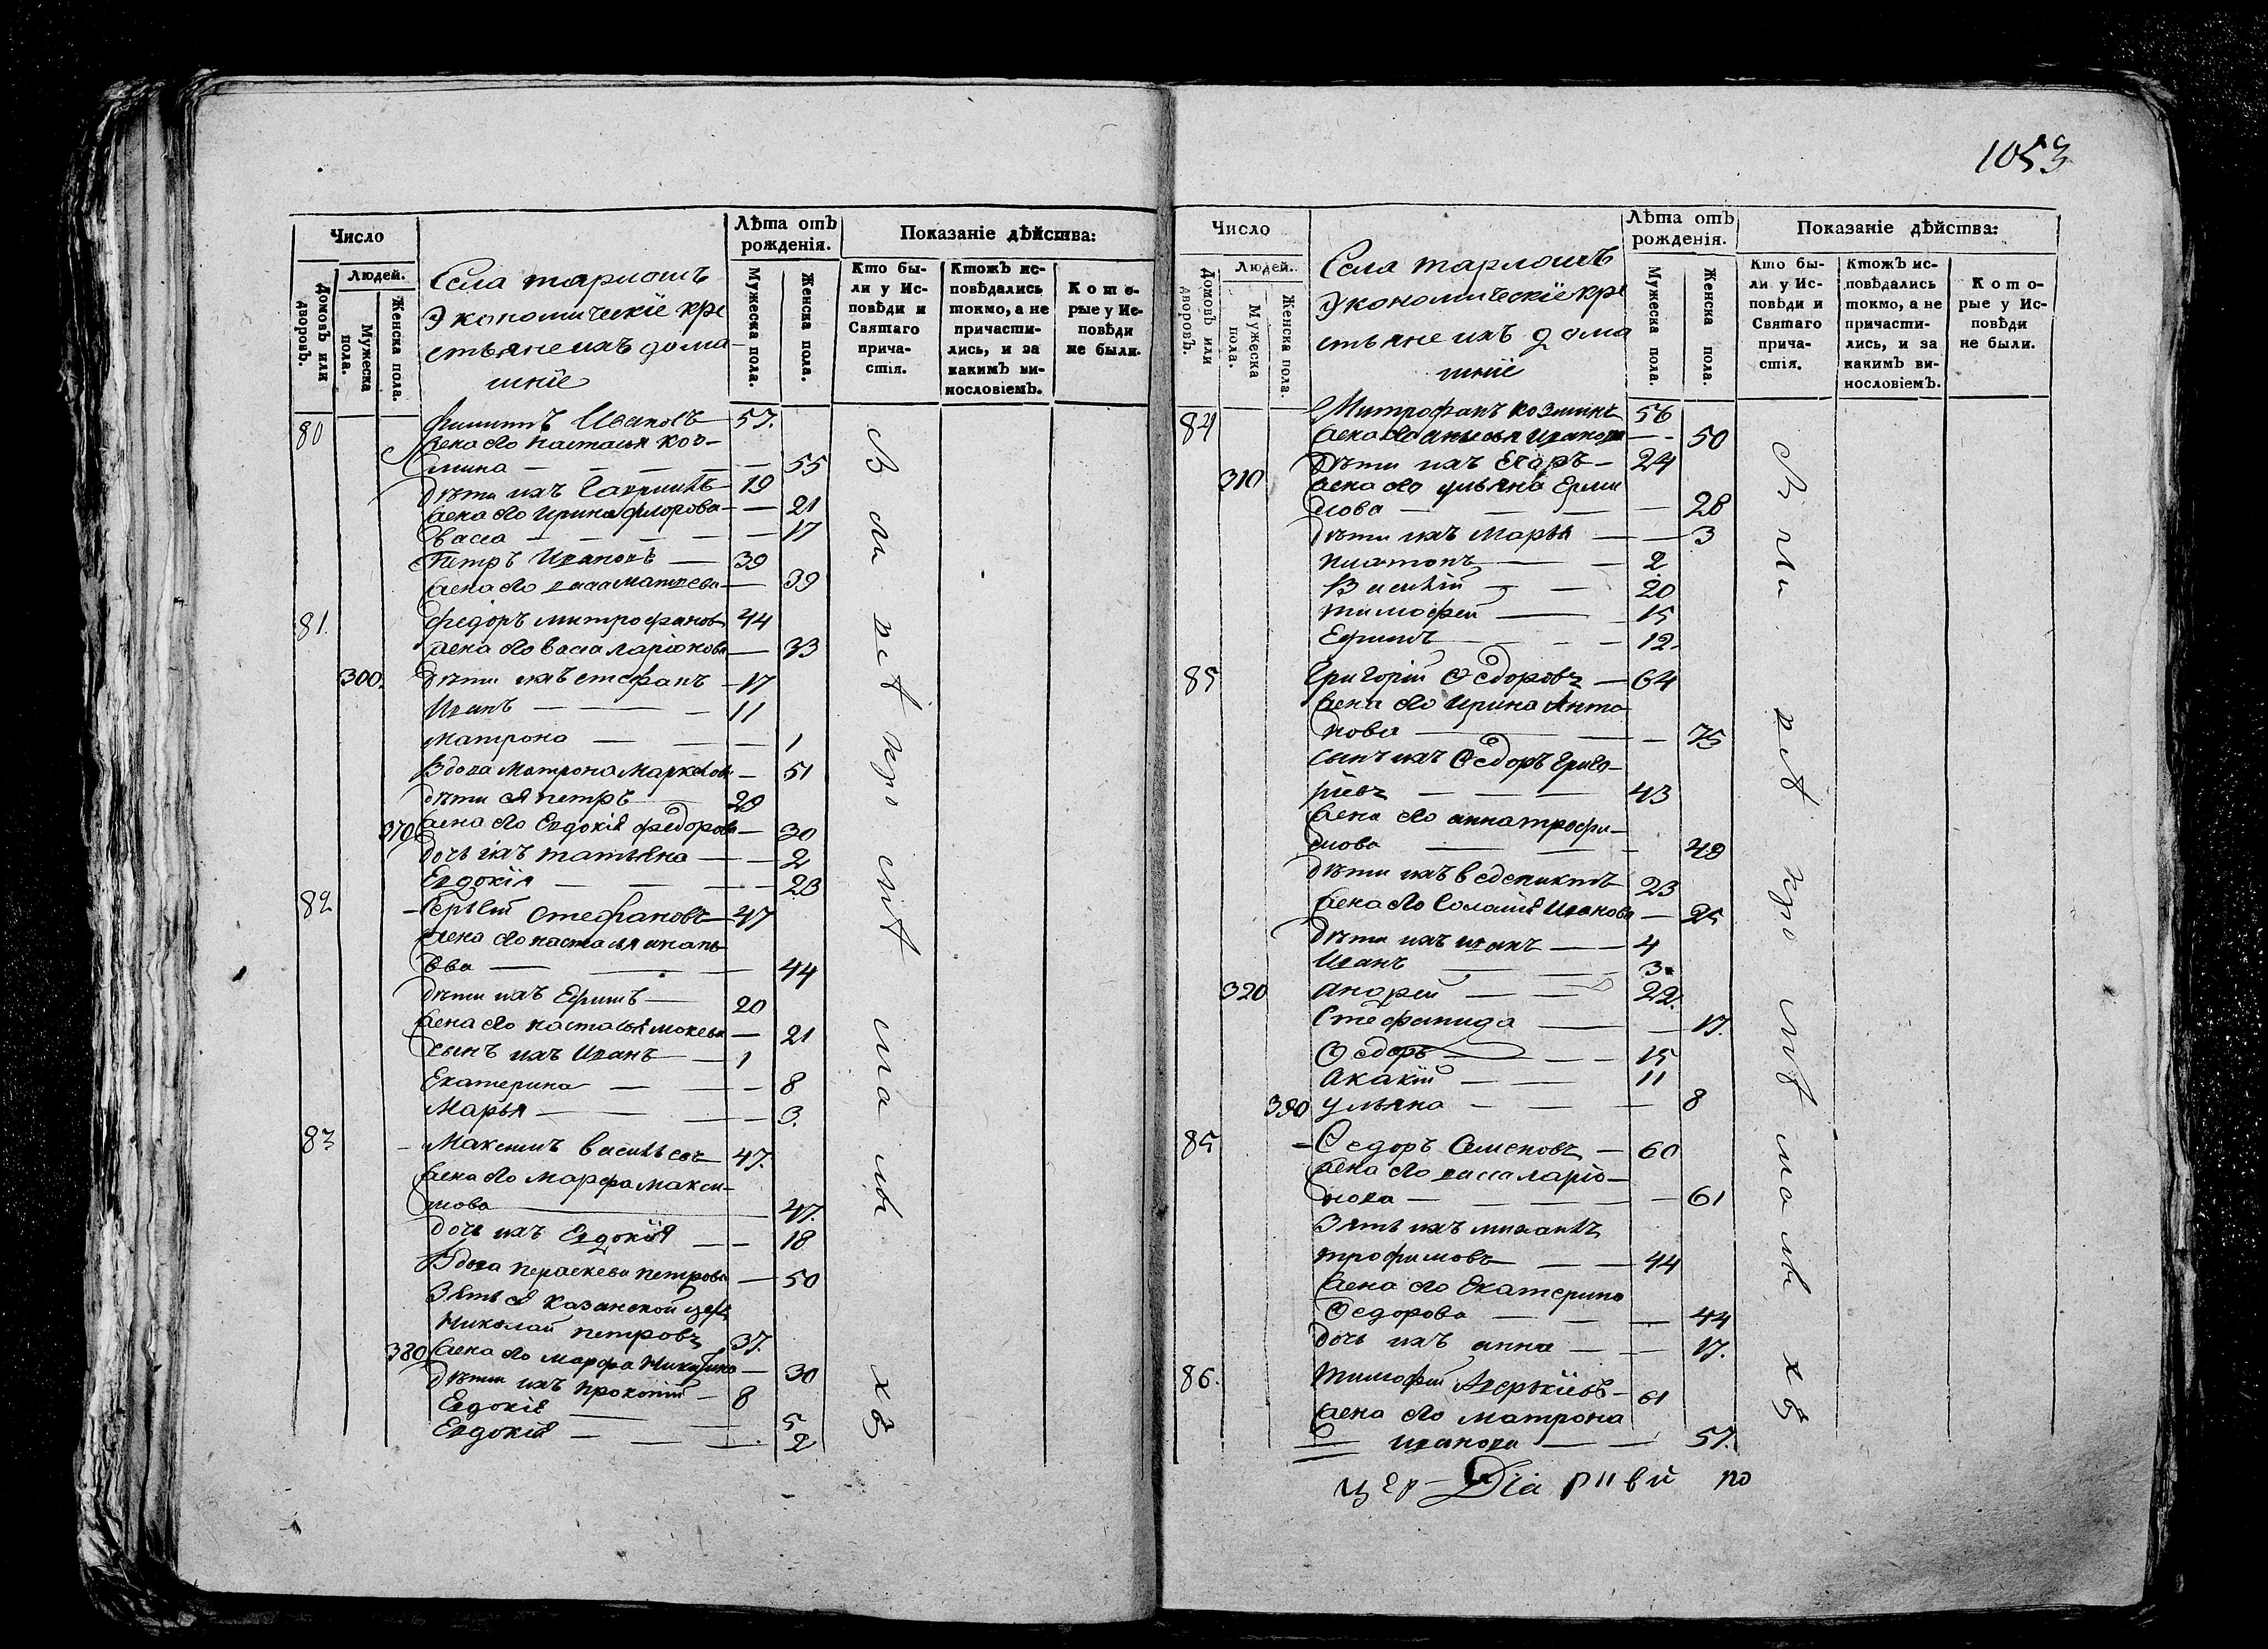 Число
Людей.
Домовъ или дворовъ.
Мужеска пола.
Женска пола.
Села тарлошъ
Экономическіе кре
стьяне ихъ дома
шніе
Лѣта отъ рожденія.
Мужеска пола.
Женска пола.
Показаніе дѣйства:
Кто были у Исповѣди и Святаго причастія.
Ктожъ исповѣдались токмо, а не причастились, и за какимъ винословіемъ.
Которые у Исповѣди не были.
80 Филиппъ Ивановъ 57.
жена его настасья коз-
мина — 55
дѣти ихъ Гаврилъ 19
жена его Ирина флорова — 21
васса — 17
Петръ Ивановъ — 39
жена его васса матвеева — 39
81. федоръ митрофановъ 44
жена его васса ларіонова — 33
300. дѣти ихъ стефанъ — 17
Иванъ — 11
матрона — 1
Вдова матрона маркелова — 51
дѣти ея петръ 29
370 жена его Евдокія федорова — 30
дочь ихъ татьяна — 2
Евдокія — 23
82 Сергѣй Стефановъ — 47
жена его настасья
ева — 44
дѣти ихъ Ефимъ — 20
жена его настасья мокеева — 21
сынъ ихъ Иванъ — 1
Екатерина — 8
Марья — 3.
83 Максимъ васильевъ 47.
жена его марфа макси-
мова 47.
дочь ихъ Евдокія — 18
Вдова параскева петрова — 50
Зять ея казанской
Николай петровъ 37.
380 жена его марфа Никитина — 30
дѣти ихъ прокопій — 8
Евдокія — 5
Евдокія — 2
1053
Число
Людей.
Домовъ или дворовъ.
Мужеска пола.
Женска пола.
Села тарлошъ
Экономическіе кре
стьяне ихъ дома
шніе
Лѣта отъ рожденія.
Мужеска пола.
Женска пола.
Показаніе дѣйства:
Кто были у Исповѣди и Святаго причастія.
Ктожъ исповѣдались токмо, а не причастились, и за какимъ винословіемъ.
Которые у Исповѣди не были.
84 Митрофанъ козминъ 56
жена его Иванова — 50
310 дѣти ихъ Егоръ — 24
жена его ульяна Ерми
лова — 28
дѣти ихъ марья — 3
платонъ — 2
Василій — 20
тимофей — 15
Ефимъ — 12.
85 Григорій Ѳедоровъ — 64
жена его Ирина Анто
нова — 75
сынъ ихъ Ѳедоръ Григо-
рьевъ — 43
жена его анна трофи-
мова — 49
дѣти ихъ веденихтъ 23
жена его Соломія Иванова — 25
дѣти ихъ иванъ — 4
Иванъ 3
320 андрей — 22.
Стефанида — 17.
Ѳедоръ — 15
Акакій — 11
390 ульяна — 8
85 Ѳедоръ Семеновъ — 60
жена его васса ларіо-
нова — 61
Зять ихъ михаилъ
трофимовъ — 44
жена его Екатерина
Ѳедорова — 44
дочь ихъ анна — 17.
86. тимофей Аверкіевъ — 61
жена его матрона
иванова — 57.